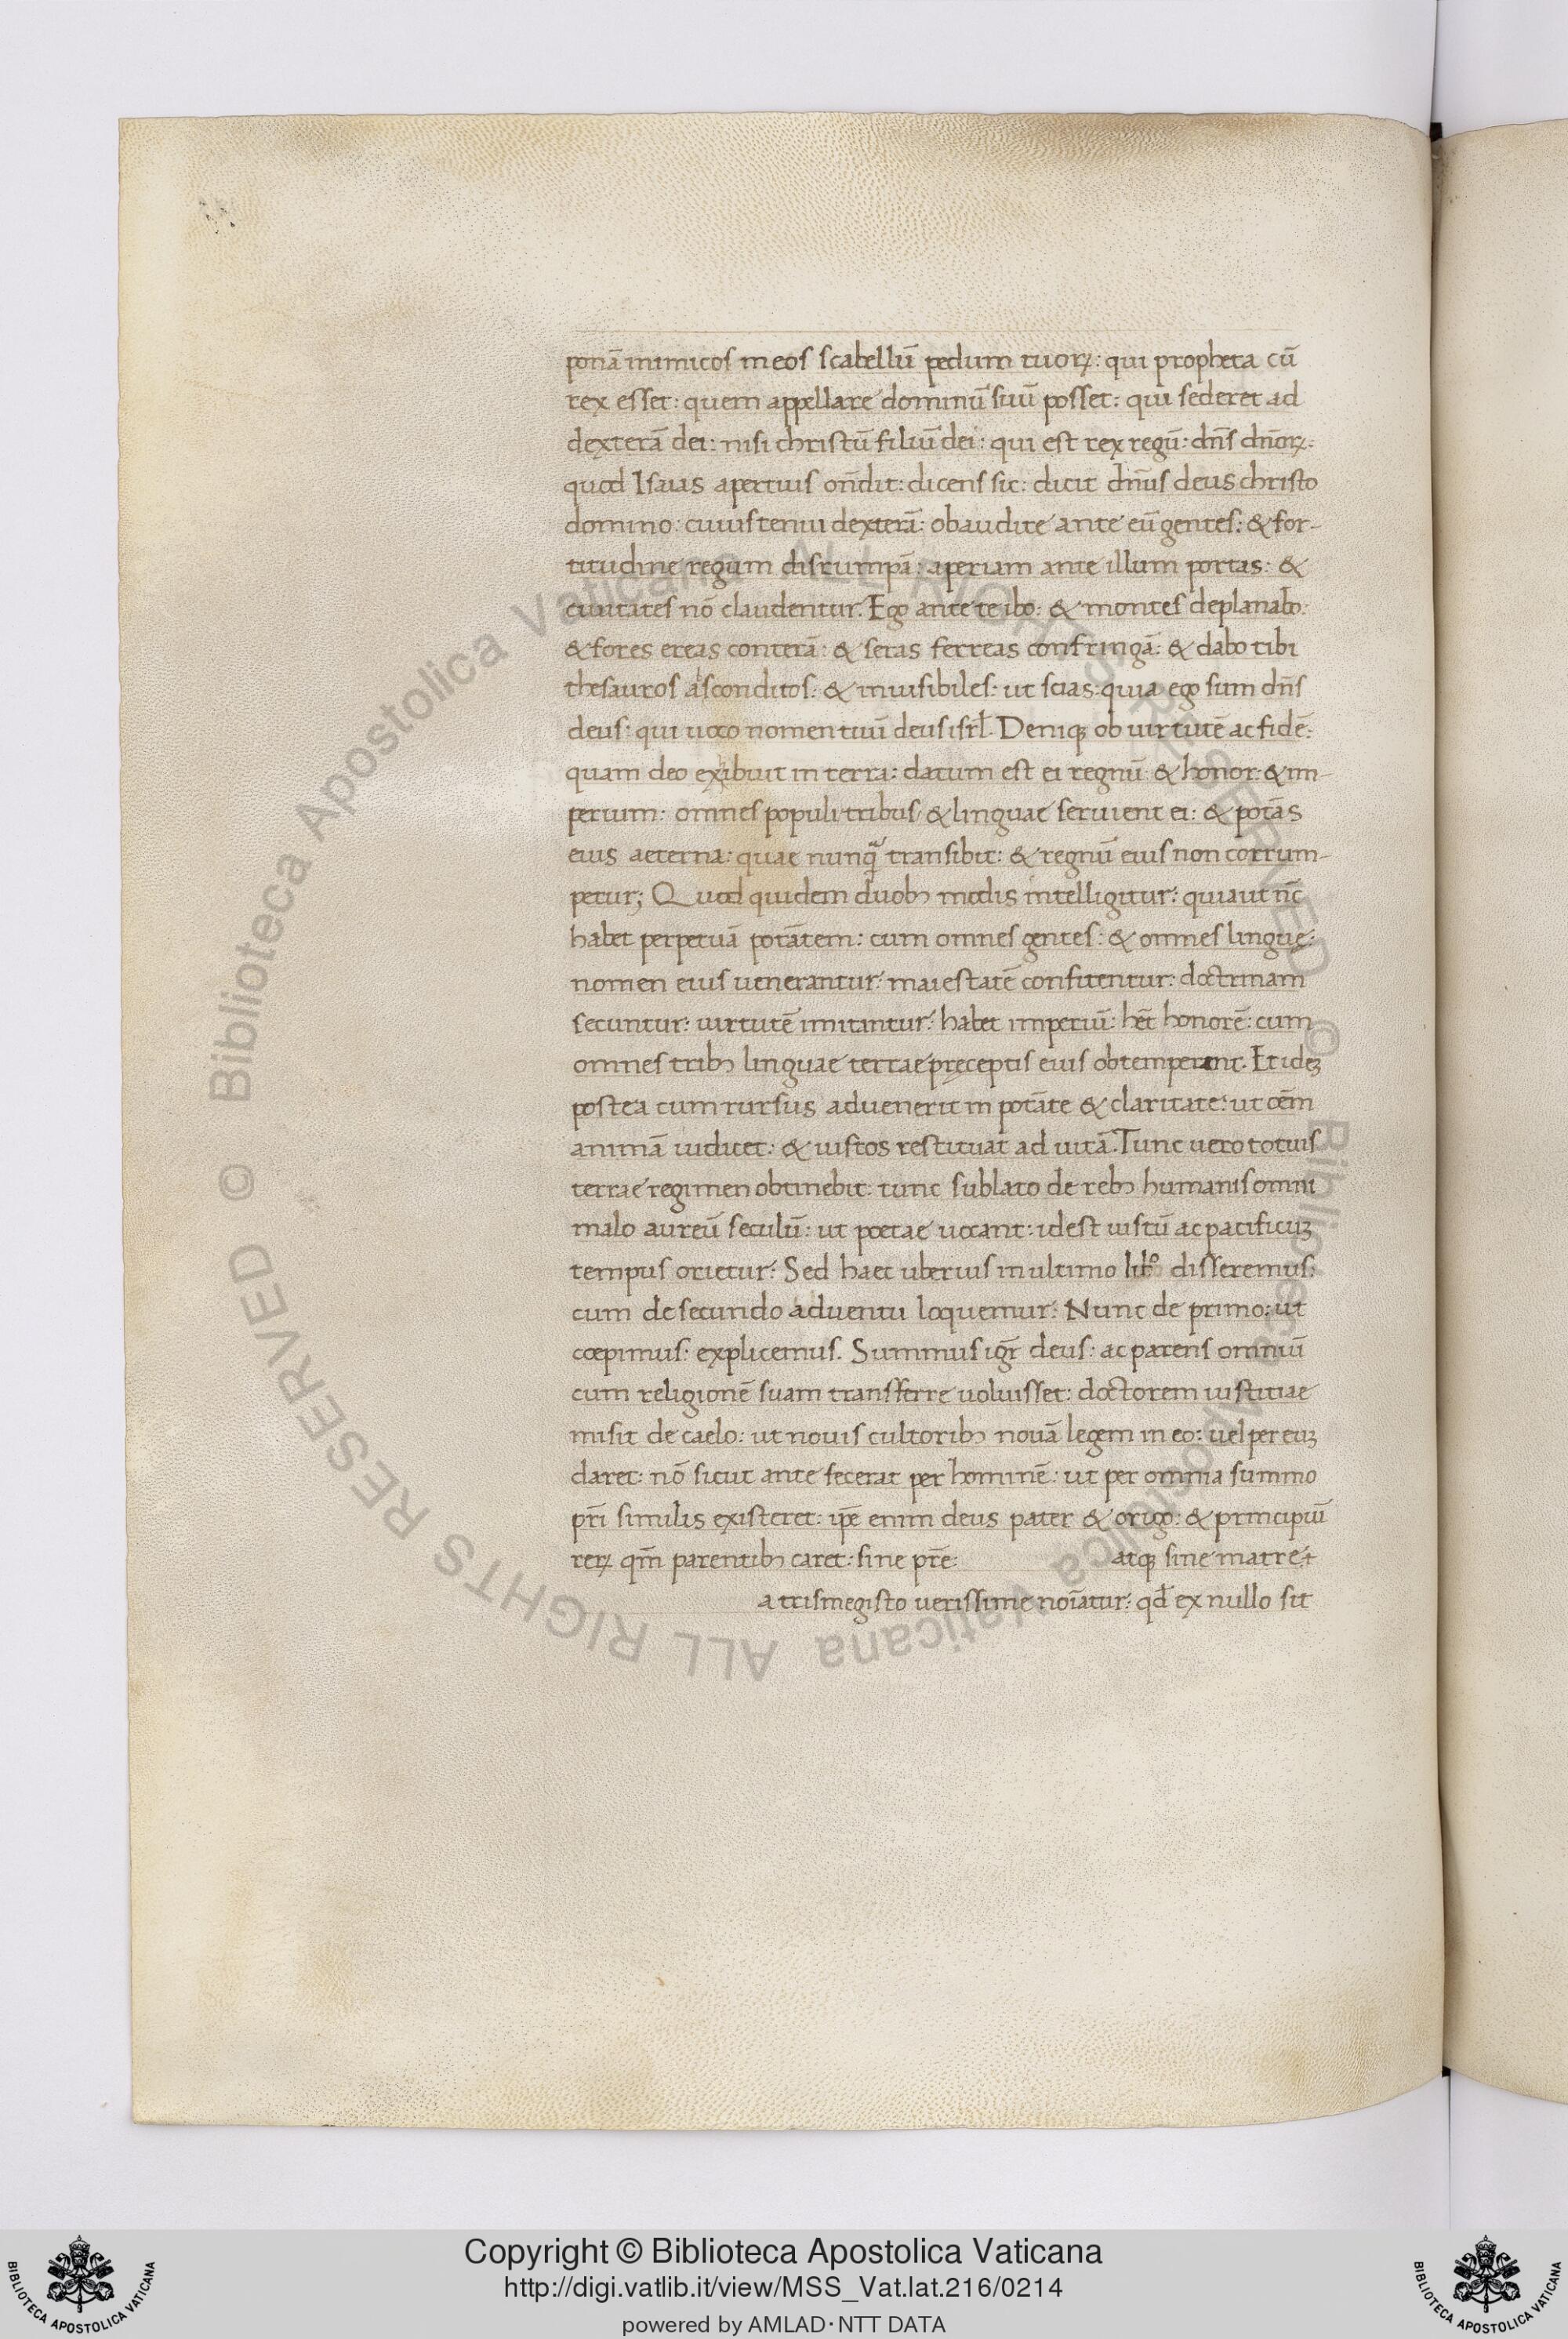 ponā inimicos meos scabellū pedum tuoꝝ: qui propheta cū
rex esset: quem appellare dominū suū posset: qui sederet ad
dexterā dei: nisi christū filiū dei: qui est rex regū: dn̄s dn̄oꝝ:
quod Isaias apertius on̄dit: dicens sic: dicit dn̄us deus christo
domino: cuius tenui dexterā: obaudite ante eū gentes: & for-
titudine regum disrumpā: aperiam ante illum portas: &
ciuitates nō claudentur. Ego ante te ibo: & montes deplanabo:
& fores ereas conterā: & seras ferreas confringā: & dabo tibi
thesauros absconditos: & inuisibiles: ut scias: quia ego sum dn̄s
deus: qui uoco nomen tuū deus isrl̄. Deniqꝫ ob uirtutē ac fidē:
quam deo exibuit in terra: datum est ei regnū & honor: & im-
perium: omnes populi tribus & linguae seruient ei: & potās
eius aeterna: quae nunqᷓ transibit: & regnū eius non corrum-
petur; Quod quidem duobꝫ modis intelligitur: quia ut nc̄
habet perpetuā potātem: cum omnes gentes: & omnes linguę:
nomen eius uenerantur: maiestatē confitentur: doctrinam
secuntur: uirtutē imitantur: habet imperiū: hēt honorē: cum
omnes tribꝫ linguae terrae pręceptis eius obtemperant. Et ideꝫ
postea cum rursus aduenerit in potāte & claritate: ut oēm
animā iudicet: & iustos restituat ad uitā. Tunc uero totius
terrae regimen obtinebit: tunc sublato de rebꝫ humanis omni
malo aureū seculū: ut poetae uocant: idest iustū ac pacificuꝫ
tempus orietur: Sed haec uberius in ultimo libͦ disseremus:
cum de secundo aduentu loquemur: Nunc de primo: ut
coepimus: explicemus. Summus igr̄ deus: ac parens omniū
cum religionē suam transferre uoluisset: doctorem iustitiae
misit de caelo: ut nouis cultoribꝫ nouā legem in eo: uel per euꝫ
daret: nō sicut ante fecerat per hominē: ut per omnia summo
pr̄i similis existeret: ip̄e enim deus pater & origo: & principiū
reꝝ qm̄ parentibꝫ caret: sine pr̄e: atqꝫ sine matre
a trismegisto uerissime noīatur: qd̄ ex nullo sit
© Biblioteca Apostolica Vaticana ALL RIGHTS RESERVED © Biblioteca Apostolica Vaticana ALL RIGHTS RESERVED
Copyright © Biblioteca Apostolica Vaticana
http://digi.vatlib.it/view/MSS_Vat.lat.216/0214
powered by AMLAD·NTT DATA
BIBLIOTECA APOSTOLICA VATICANA
BIBLIOTECA APOSTOLICA VATICANA